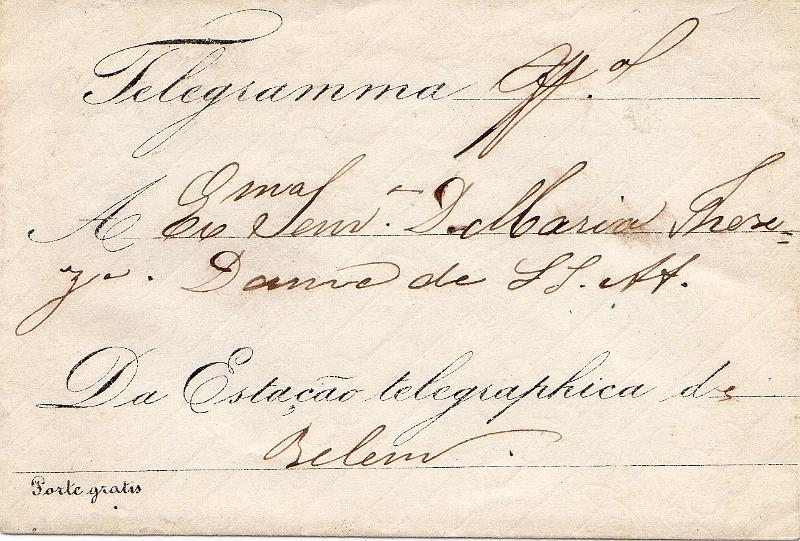 Telegramma Off.al
A Exma Senr.a D. Maria There=
za. Dame de SS. AA.
Da Estação telegraphica de
Belem.
Porte gratis